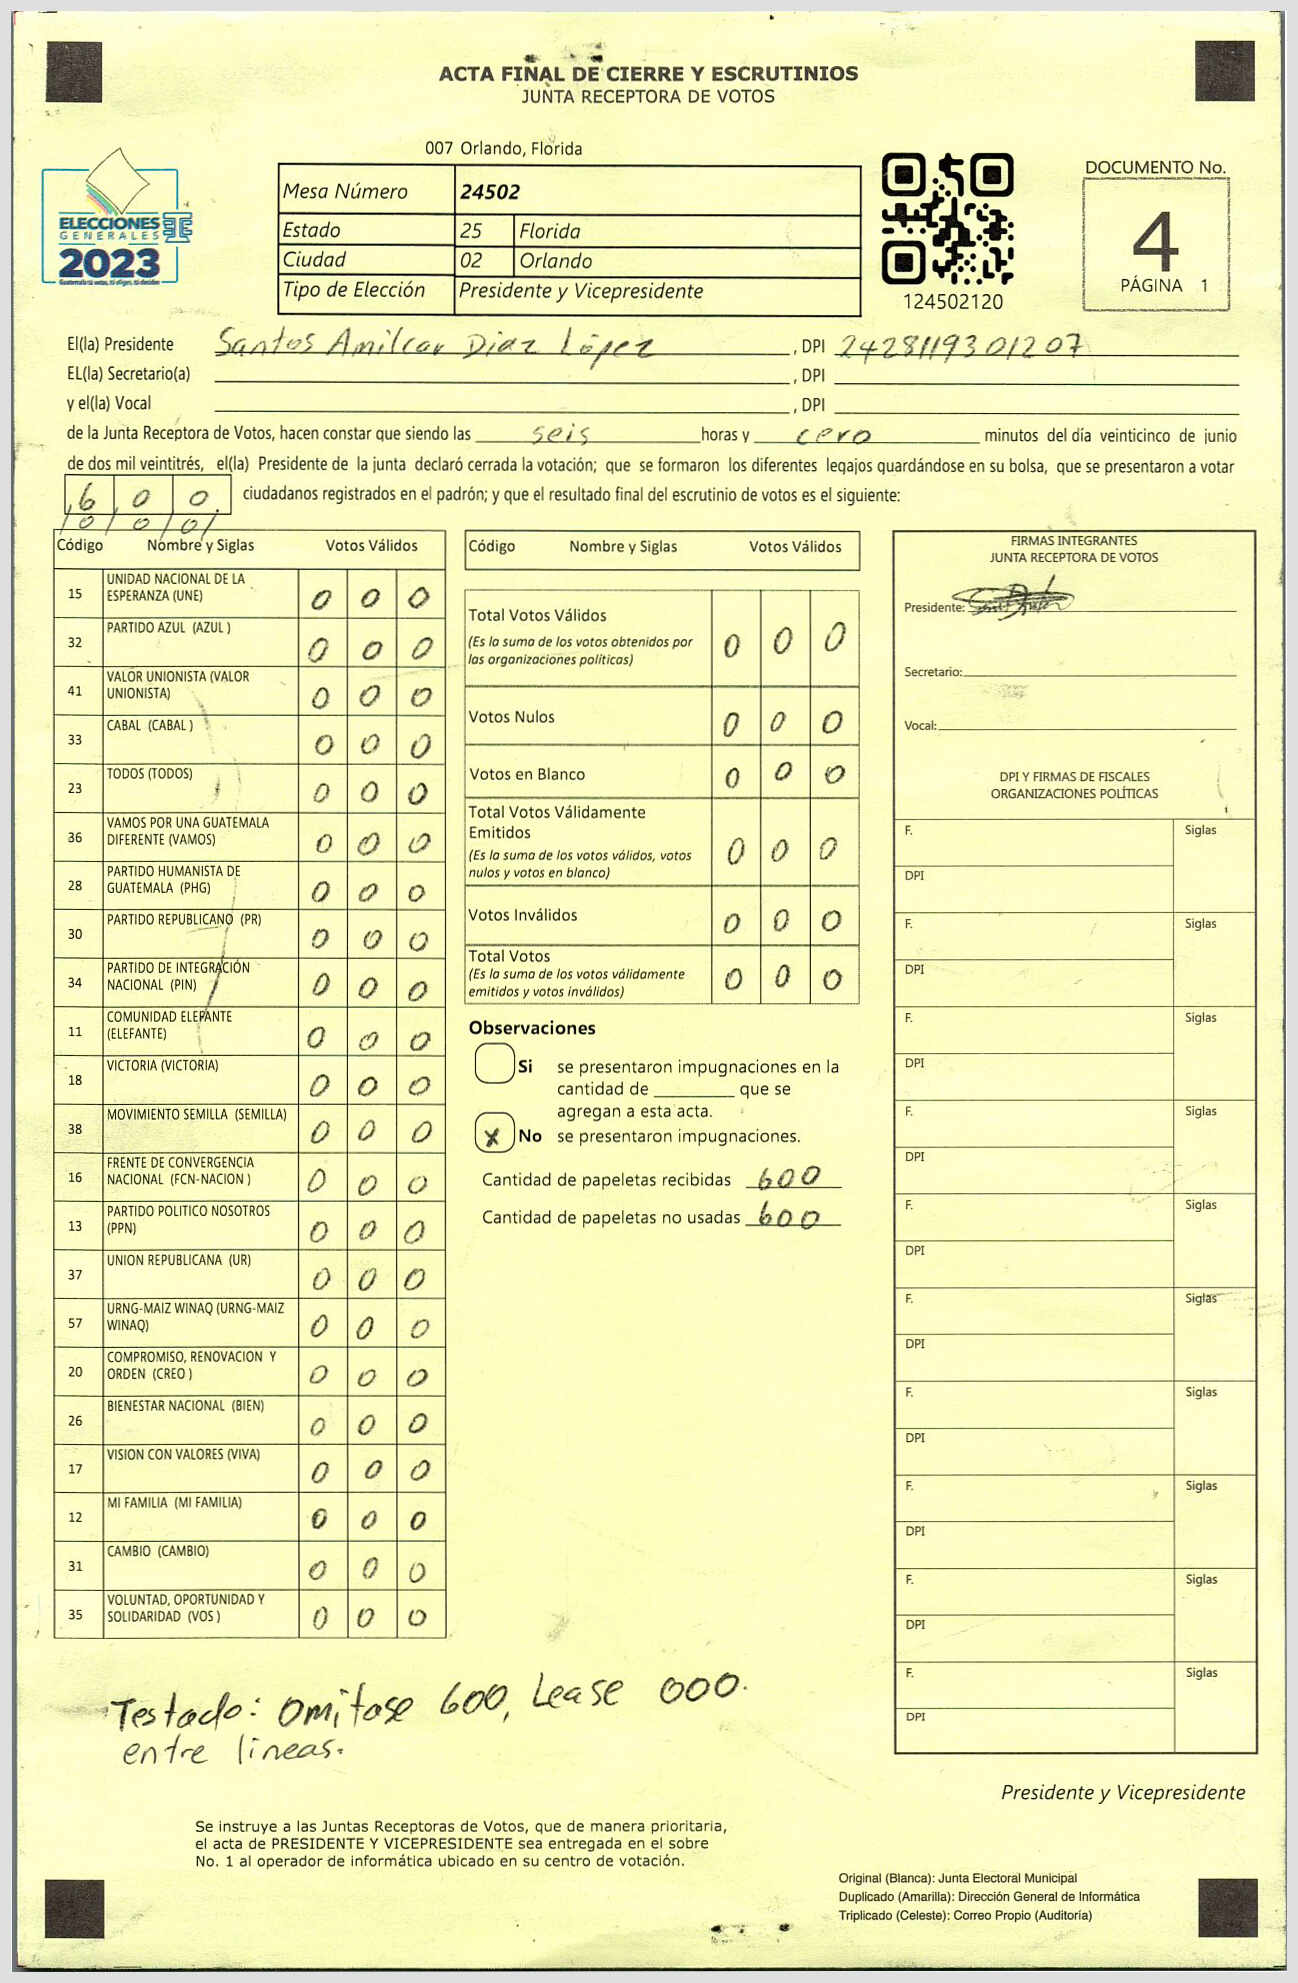 ACTA FINAL DE CIERRE Y ESCRUTINIOS
JUNTA RECEPTORA DE VOTOS
007 Orlando, Florida
ELECCIONES
GENERALES
2023
Mesa Número 24502
Estado 25 Florida
Ciudad 02 Orlando
Tipo de Elección Presidente y Vicepresidente
124502120
DOCUMENTO No.
4
PÁGINA 1
El(la) Presidente Santos Amilcar Diaz López, DPI 2428119301207
EL(la) Secretario(a) , DPI
y el(la) Vocal , DPI
de la Junta Receptora de Votos, hacen constar que siendo las seis horas y cero minutos del día veinticinco de junio
de dos mil veintitrés, el(la) Presidente de la junta declaró cerrada la votación; que se formaron los diferentes legajos guardándose en su bolsa, que se presentaron a votar
6 0 0 ciudadanos registrados en el padrón; y que el resultado final del escrutinio de votos es el siguiente:
/0/0/0/
Código Nombre y Siglas Votos Válidos
15 UNIDAD NACIONAL DE LA
ESPERANZA (UNE) 0 0 0
32 PARTIDO AZUL (AZUL ) 0 0 0
41 VALOR UNIONISTA (VALOR
UNIONISTA) 0 0 0
33 CABAL (CABAL ) 0 0 0
23 TODOS (TODOS) 0 0 0
36 VAMOS POR UNA GUATEMALA
DIFERENTE (VAMOS) 0 0 0
28 PARTIDO HUMANISTA DE
GUATEMALA (PHG) 0 0 0
30 PARTIDO REPUBLICANO (PR) 0 0 0
34 PARTIDO DE INTEGRACIÓN
NACIONAL (PIN) 0 0 0
11 COMUNIDAD ELEFANTE
(ELEFANTE) 0 0 0
18 VICTORIA (VICTORIA) 0 0 0
38 MOVIMIENTO SEMILLA (SEMILLA) 0 0 0
16 FRENTE DE CONVERGENCIA
NACIONAL (FCN-NACION ) 0 0 0
13 PARTIDO POLITICO NOSOTROS
(PPN) 0 0 0
37 UNION REPUBLICANA (UR) 0 0 0
57 URNG-MAIZ WINAQ (URNG-MAIZ
WINAQ) 0 0 0
20 COMPROMISO, RENOVACION Y
ORDEN (CREO ) 0 0 0
26 BIENESTAR NACIONAL (BIEN) 0 0 0
17 VISION CON VALORES (VIVA) 0 0 0
12 MI FAMILIA (MI FAMILIA) 0 0 0
31 CAMBIO (CAMBIO) 0 0 0
35 VOLUNTAD, OPORTUNIDAD Y
SOLIDARIDAD (VOS ) 0 0 0
Código Nombre y Siglas Votos Válidos
Total Votos Válidos
(Es la suma de los votos obtenidos por
las organizaciones políticas) 0 0 0
Votos Nulos 0 0 0
Votos en Blanco 0 0 0
Total Votos Válidamente
Emitidos
(Es la suma de los votos válidos, votos
nulos y votos en blanco) 0 0 0
Votos Inválidos 0 0 0
Total Votos
(Es la suma de los votos válidamente
emitidos y votos inválidos) 0 0 0
Observaciones
Si se presentaron impugnaciones en la
cantidad de ________ que se
agregan a esta acta.
x No se presentaron impugnaciones.
Cantidad de papeletas recibidas 600
Cantidad de papeletas no usadas 600
FIRMAS INTEGRANTES
JUNTA RECEPTORA DE VOTOS
Presidente:
Secretario:
Vocal:
DPI Y FIRMAS DE FISCALES
ORGANIZACIONES POLÍTICAS
F. Siglas
DPI
F. Siglas
DPI
F. Siglas
DPI
F. Siglas
DPI
F. Siglas
DPI
F. Siglas
DPI
F. Siglas
DPI
F. Siglas
DPI
F. Siglas
DPI
F. Siglas
DPI
Testado: Omitase 600, Lease 000.
entre lineas.
Presidente y Vicepresidente
Se instruye a las Juntas Receptoras de Votos, que de manera prioritaria,
el acta de PRESIDENTE Y VICEPRESIDENTE sea entregada en el sobre
No. 1 al operador de informática ubicado en su centro de votación.
Original (Blanca): Junta Electoral Municipal
Duplicado (Amarilla): Dirección General de Informática
Triplicado (Celeste): Correo Propio (Auditoría)